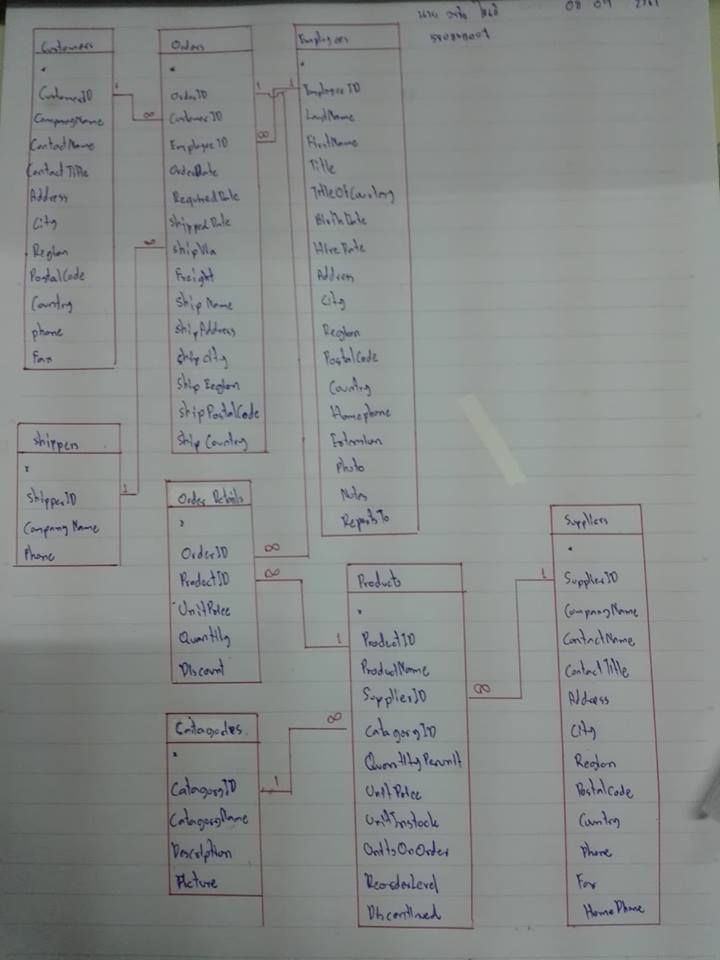 08 09 2561
Customers
*
CustomerID
CompanyName
ContactName
ContactTitle
Address
City
Region
PostalCode
Country
phone
Fax
1
∞
Orders
*
OrderID
CustomerID
EmployeeID
OrderDate
RequiredDate
ShippedDate
ShipVia
Freight
Ship Name
ShipAddress
Ship city
Ship Region
Ship PostalCode
Ship Country
1
∞
1
∞
Employees
*
EmployeeID
LastName
FirstName
Title
TitleOfCourtesy
BirthDate
HireDate
Address
City
Region
PostalCode
Country
Homephone
Extension
Photo
Notes
ReportsTo
Shippers
*
ShipperID
Company Name
Phone
1
Order Details
*
OrderID
ProductID
UnitPrice
Quantity
Discount
∞
∞
1
Products
*
ProductID
ProductName
SupplierID
CatagoryID
QuantityPerunit
UnitPrice
UnitInstock
UnitsOnOrder
ReorderLevel
Discontinued
∞
∞
1
Suppliers
*
SupplierID
CompanyName
ContactName
ContactTitle
Address
City
Region
PostalCode
Country
Phone
Fax
HomePhone
1
Catagories
*
CatagoryID
CatagoryName
Description
Picture